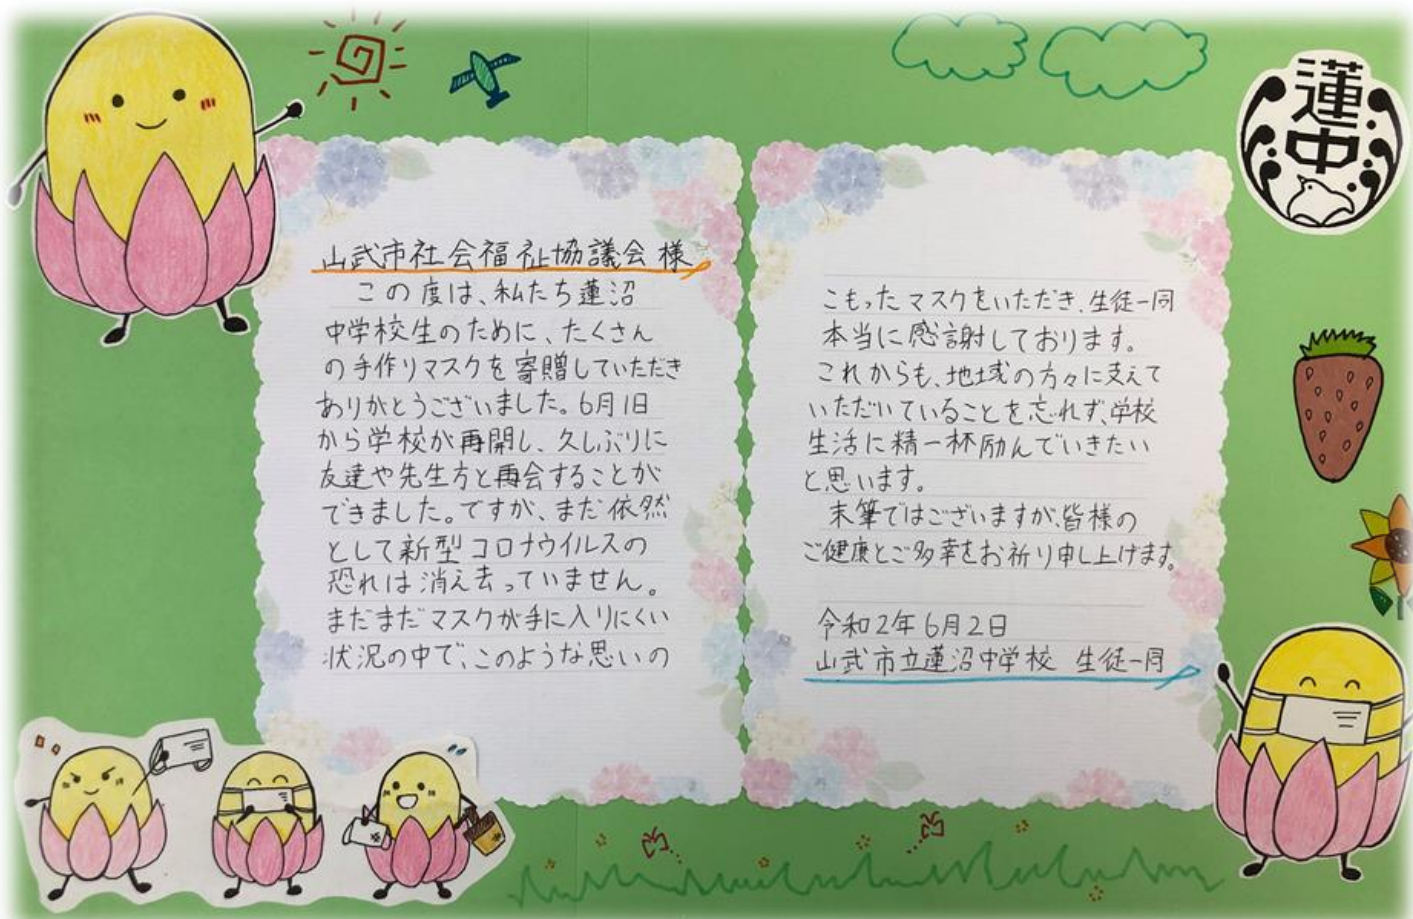 蓮中
山武市社会福祉協議会様
この度は、私たち蓮沼
中学校生のために、たくさん
の手作りマスクを寄贈していただき
ありがとうございました。6月1日
から学校が再開し、久しぶりに
友達や先生方と再会することが
できました。ですが、まだ依然
として新型コロナウイルスの
恐れは消え去っていません。
まだまだマスクが手に入りにくい
状況の中で、このような思いの
こもったマスクをいただき、生徒一同
本当に感謝しております。
これからも、地域の方々に支えて
いただいていることを忘れず、学校
生活に精一杯励んでいきたい
と思います。
末筆ではございますが、皆様の
ご健康とご多幸をお祈り申し上げます。
令和2年6月2日
山武市立蓮沼中学校 生徒一同